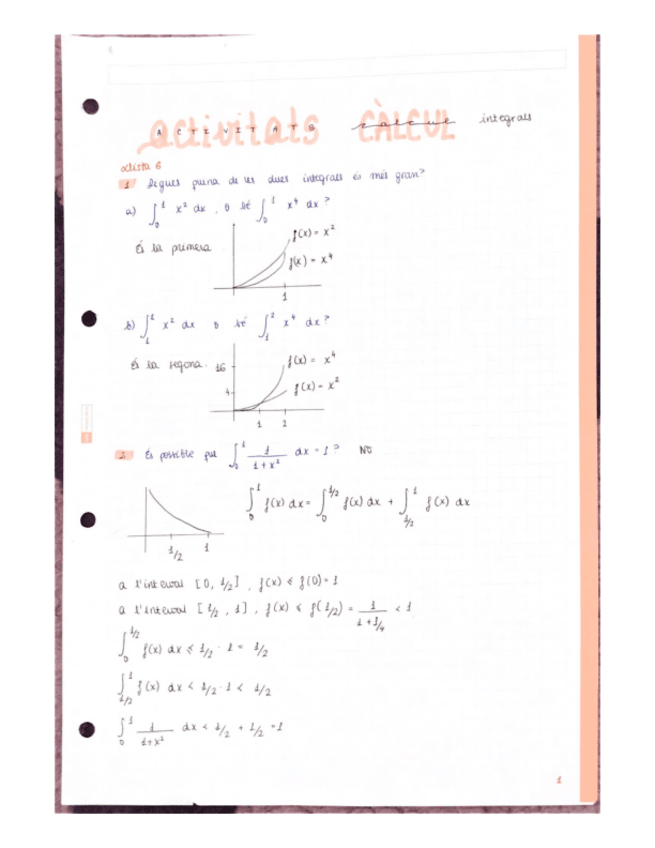 activitats CÀLCUL
ACTIVITATS calcul integrals
llista 6
1 Digues quina de les dues integrals és més gran?
a) ∫₀¹ x² dx , o bé ∫₀¹ x⁴ dx?
És la primera
f(x) = x²
f(x) = x⁴
1
b) ∫₁² x² dx o bé ∫₁² x⁴ dx?
És la segona.
16
f(x) = x⁴
4
f(x) = x²
1 2
2. És possible que ∫₀¹ 1/(1+x²) dx = 1? NO
∫₀¹ f(x) dx = ∫₀^1/2 f(x) dx + ∫_1/2^1 f(x) dx
1/2 1
a l'interval [0, 1/2], f(x) ≤ f(0) = 1
a l'interval [1/2, 1], f(x) ≤ f(1/2) = 1/(1+1/4) < 1
∫₀^1/2 f(x) dx ≤ 1/2 · 1 = 1/2
∫_1/2^1 f(x) dx < 1/2 · 1 < 1/2
∫₀¹ 1/(1+x²) dx < 1/2 + 1/2 = 1
1